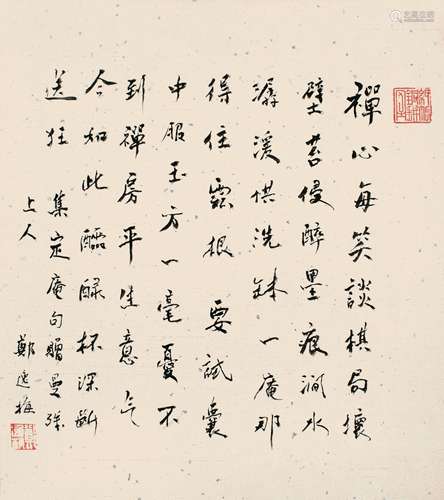 禪心每笑談棋局壞
壁苔侵醉墨痕澗水
潺湲供洗鉢一庵那
得住雲根要試囊
中服玉方一毫憂不
到禪房平生意氣
今如此醽醁杯深斷
送狂集定庵句贈曼殊
上人
鄭逸梅